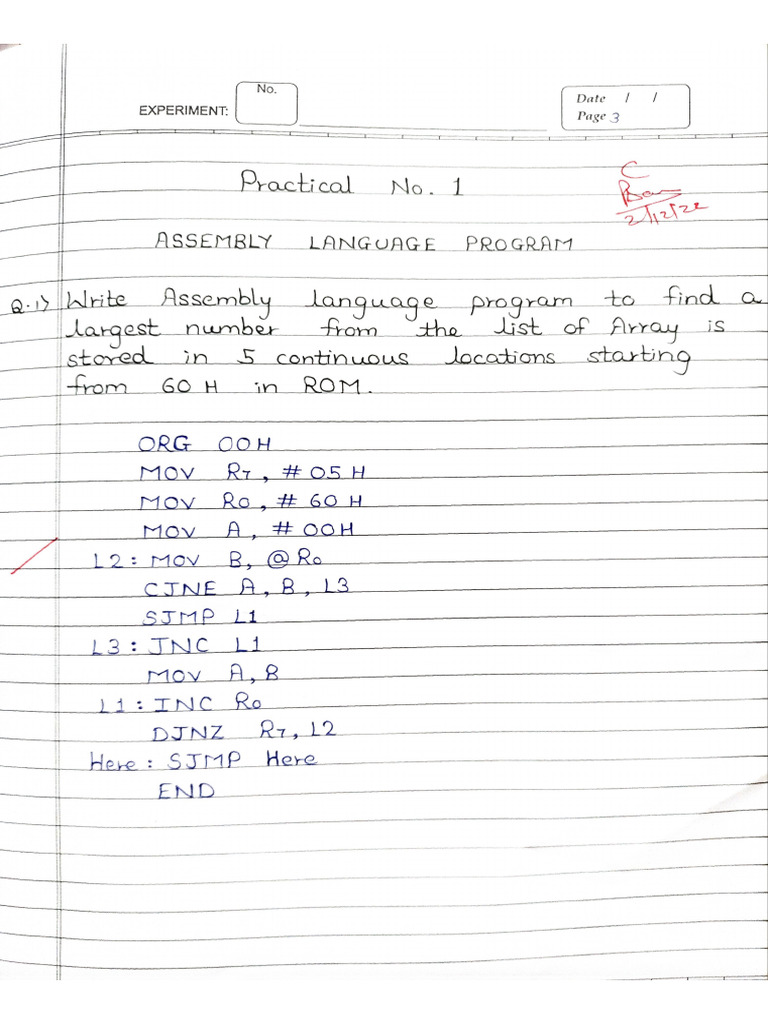 No.
EXPERIMENT:
Date / /
Page 3
Practical No. 1
C
2/12/22
ASSEMBLY LANGUAGE PROGRAM
Q.1> Write Assembly language program to find a
largest number from the list of Array is
stored in 5 continuous locations starting
from 60 H in ROM.
ORG 00H
MOV R7, # 05 H
MOV R0, # 60 H
MOV A, # 00H
L2: MOV B, @ R0
CJNE A, B, L3
SJMP L1
L3: JNC L1
MOV A, B
L1: INC R0
DJNZ R7, L2
Here: SJMP Here
END